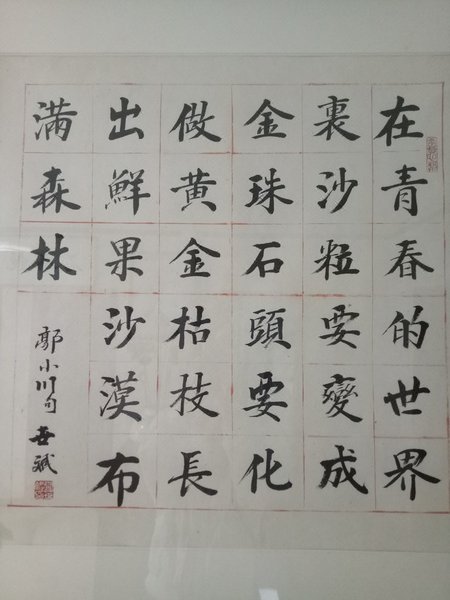 在青春的世界
裏沙粒要變成
金珠石頭要化
做黄金枯枝長
出鮮果沙漠布
滿森林
郭小川句 世斌